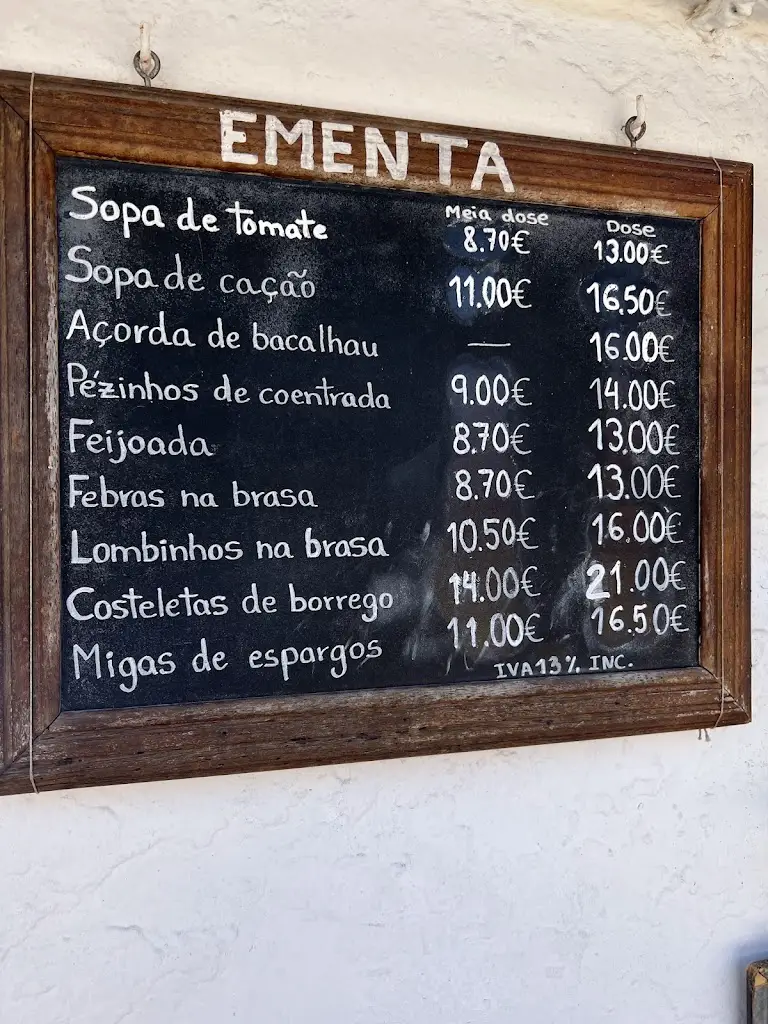 EMENTA
Meia dose Dose
Sopa de tomate 8.70€ 13.00€
Sopa de cação 11.00€ 16.50€
Açorda de bacalhau — 16.00€
Pézinhos de coentrada 9.00€ 14.00€
Feijoada 8.70€ 13.00€
Febras na brasa 8.70€ 13.00€
Lombinhos na brasa 10.50€ 16.00€
Costeletas de borrego 14.00€ 21.00€
Migas de espargos 11.00€ 16.50€
IVA 13% INC.